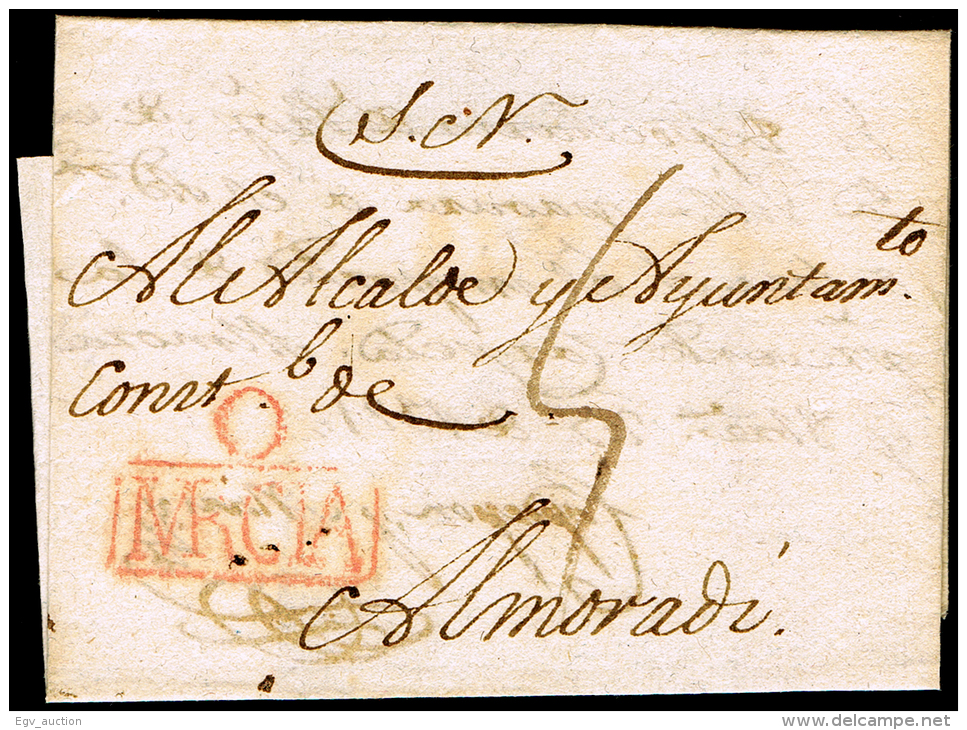 S. N.
Al Alcalde y Ayuntam.to
Const.l de
MRCIA
Almoradi.
Egv_auction
www.delcampe.net